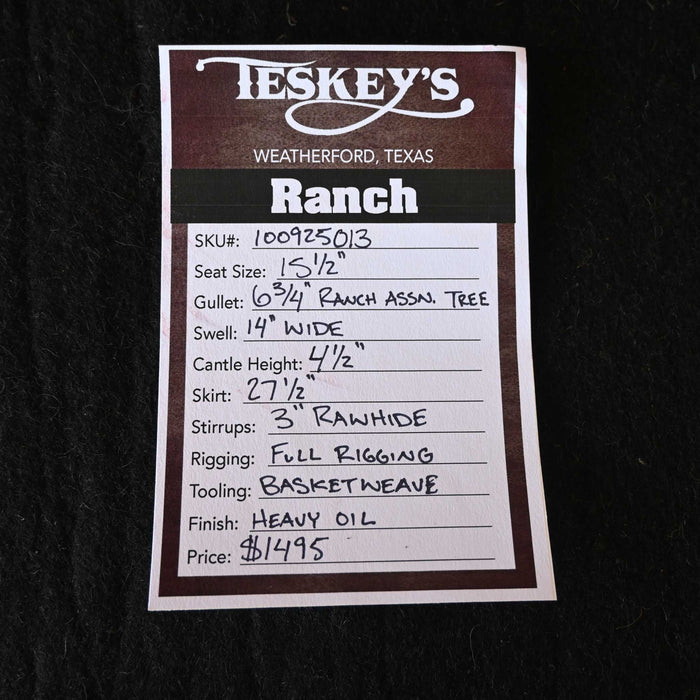 TESKEY'S
WEATHERFORD, TEXAS
Ranch
SKU#: 100925013
Seat Size: 15 1/2"
Gullet: 6 3/4" RANCH ASSN. TREE
Swell: 14" WIDE
Cantle Height: 4 1/2"
Skirt: 27 1/2"
Stirrups: 3" RAWHIDE
Rigging: FULL RIGGING
Tooling: BASKETWEAVE
Finish: HEAVY OIL
Price: $1495